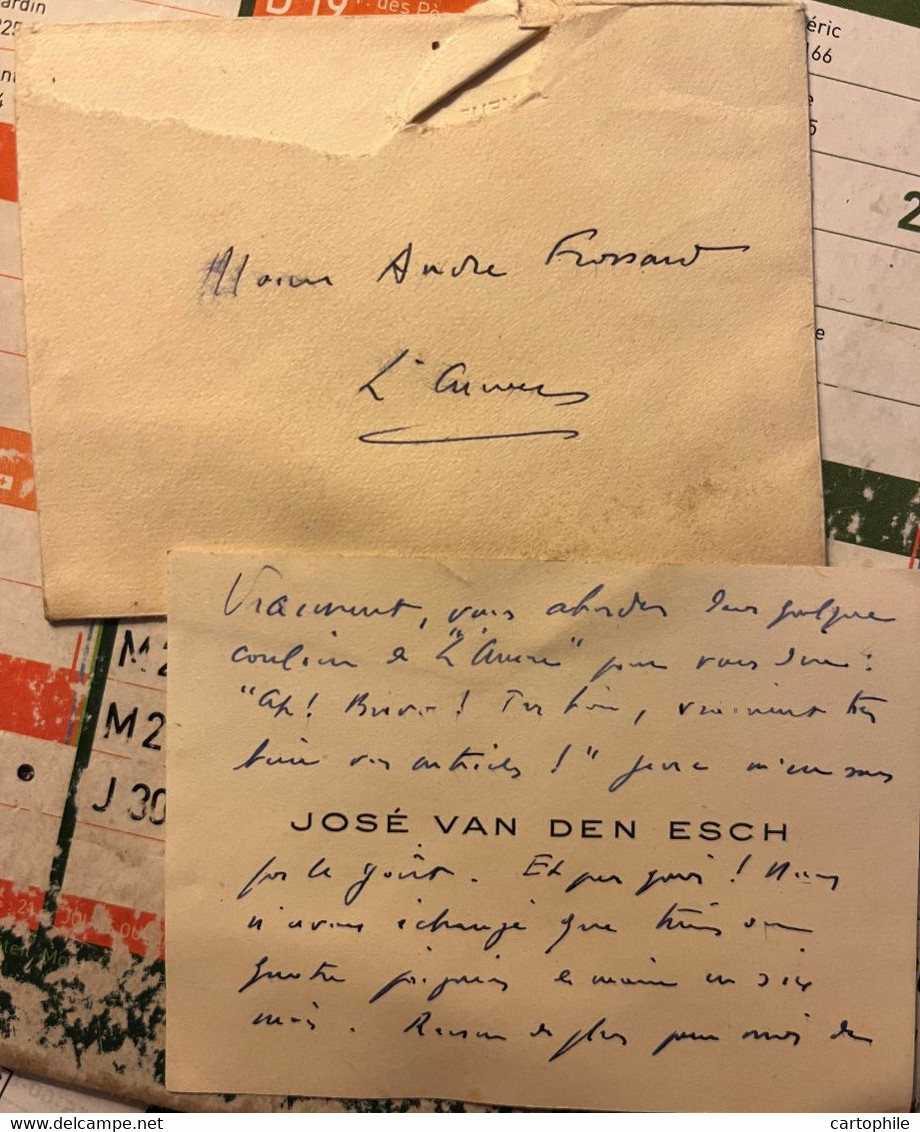 D 19 P. des Pè
ardin
25
éric
166
5
2
André Frossard
L'Aurore
Vraiment, vous aborder dans quelque
couloir de "L'Aurore" pour vous dire :
"Ah! Bravo! Très bien, vraiment très
bien vos articles !" je ne m'en sens
JOSÉ VAN DEN ESCH
pas le goût. Et puis quoi ! Nous
n'avons échangé que trois ou
quatre poignées de main en six
mois. Raison de plus pour moi de
M 2
M 2
J 30
cartophile